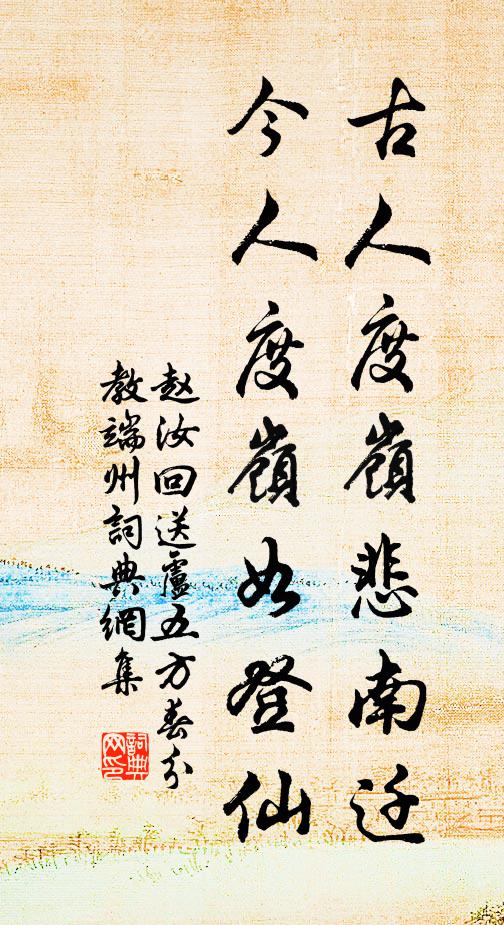 古人度嶺悲南迁
今人度嶺如登仙
赵汝回送盧五方春分
教端州詞典網集
詞典
网印